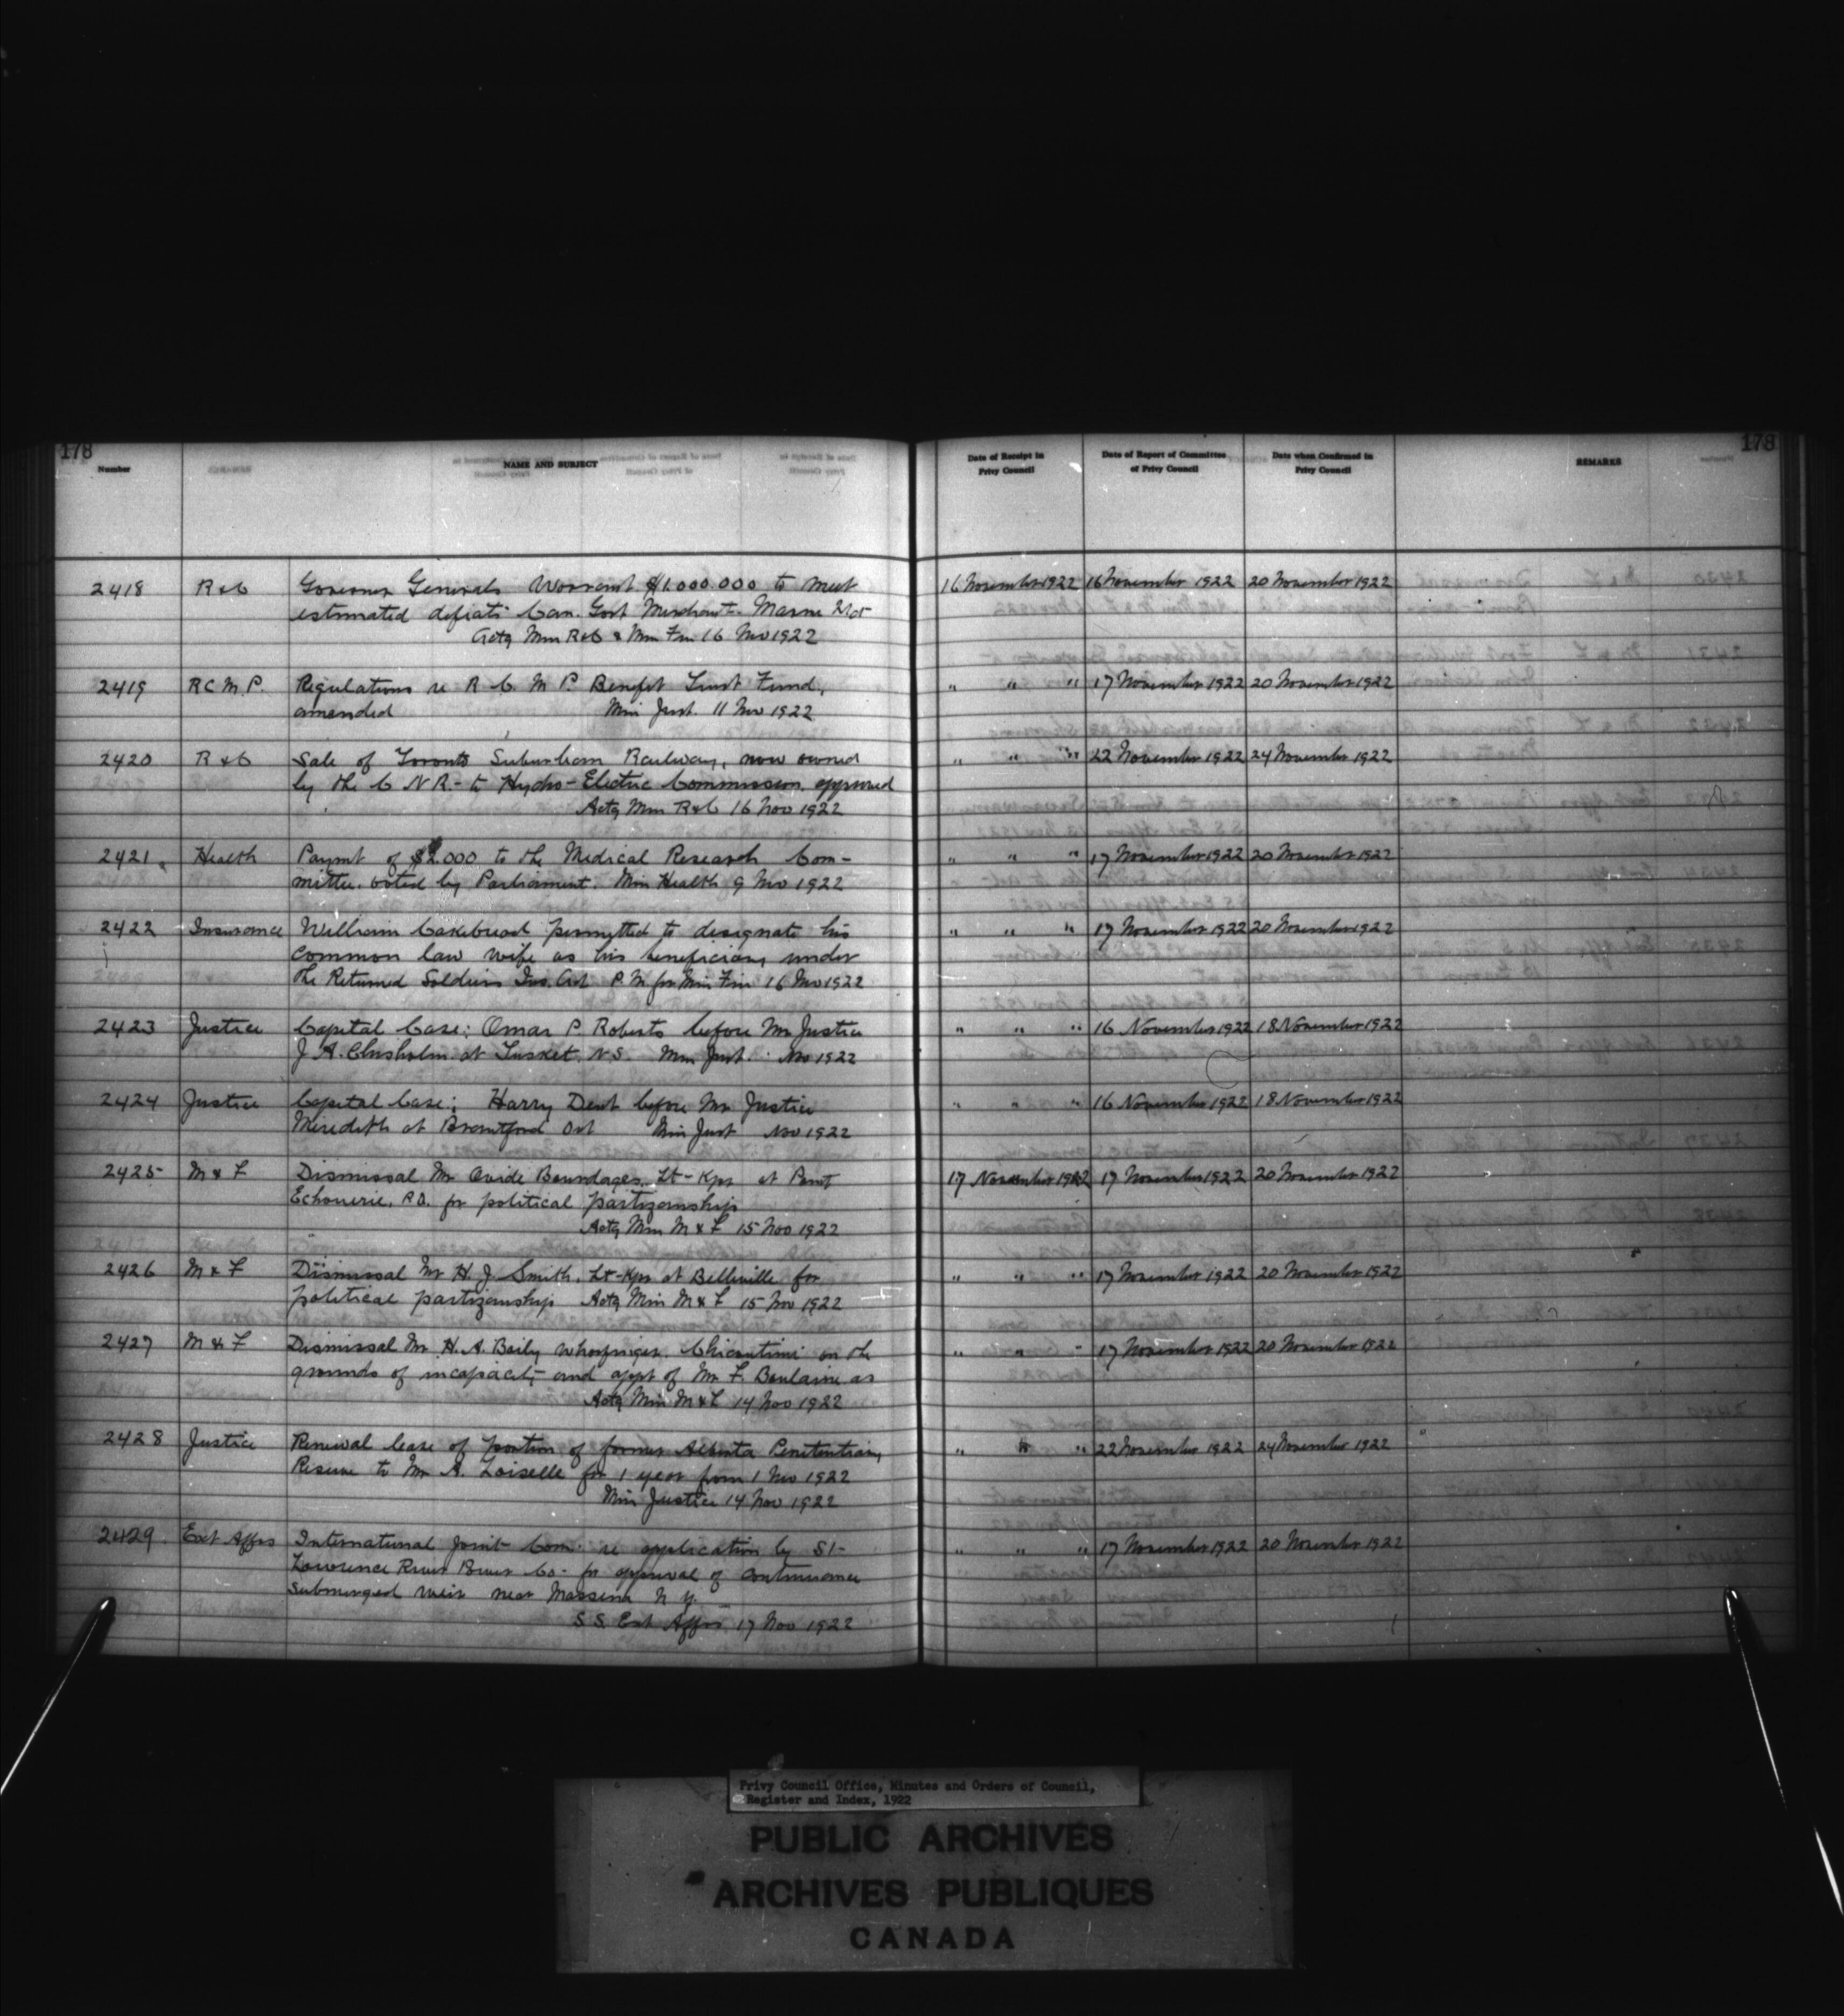 178
178
Number
NAME AND SUBJECT
Date of Receipt in Privy Council
Date of Report of Committee of Privy Council
Date when Confirmed in Privy Council
REMARKS
2418 R & C Governor Generals Warrant $1.000.000 to meet 16 November 1922 16 November 1922 20 November 1922
estimated deficits Can. Govt Merchant Marine Ltd
Actg Min R&C & Min Fin 16 Nov 1922
2419 R C M. P. Regulations re R C M P. Benefit Trust Fund, " " " 17 November 1922 20 November 1922
amended Min Just. 11 Nov 1922
2420 R & C Sale of Toronto Suburban Railway, now owned " " " 22 November 1922 24 November 1922
by the C N R. - to Hydro-Electric Commission approved
Actg Min R&C 16 Nov 1922
2421 Health Paymt of $2.000 to the Medical Research Com- " " " 17 November 1922 20 November 1922
mittee. voted by Parliament. Min Health 9 Nov 1922
2422 Insurance William Cakebread permitted to designate his " " " 17 November 1922 20 November 1922
common law wife as his beneficiary under
the Returned Soldiers Ins. Act P. M. for Min Fin 16 Nov 1922
2423 Justice Capital Case: Omar P. Roberts before Mr Justice " " " 16 November 1922 18 November 1922
J A. Chisholm at Tusket N.S. Min Just. Nov 1922
2424 Justice Capital Case: Harry Dent before Mr Justice " " " 16 November 1922 18 November 1922
Meredith at Brantford Ont Min Just Nov 1922
2425 M & F Dismissal Mr Ovide Bourdages, Lt-Kpr at Point 17 November 1922 17 November 1922 20 November 1922
Echouerie, P.Q. for political partizanship
Actg Min M & F 15 Nov 1922
2426 M & F Dismissal Mr H. J. Smith, Lt-Kpr at Belleville for " " " 17 November 1922 20 November 1922
political partizanship Actg Min M & F 15 Nov 1922
2427 M & F Dismissal Mr H. A. Baily wharfinger. Chicoutimi on the " " " 17 November 1922 20 November 1922
grounds of incapacity and appt of Mr F. Boulaine as
Actg Min M & F 14 Nov 1922
2428 Justice Renewal lease of portion of former Alberta Penitentiary " " " 22 November 1922 24 November 1922
Reserve to Mr A. Loiselle for 1 year from 1 Nov 1922
Min Justice 14 Nov 1922
2429 Ext Affrs International Joint Com. re application by St- " " " 17 November 1922 20 November 1922
Lawrence River Power Co- for approval of continuance
submerged weir near Massena N. Y.
S S. Ext Affrs 17 Nov 1922
Privy Council Office, Minutes and Orders of Council,
Register and Index, 1922
PUBLIC ARCHIVES
ARCHIVES PUBLIQUES
CANADA